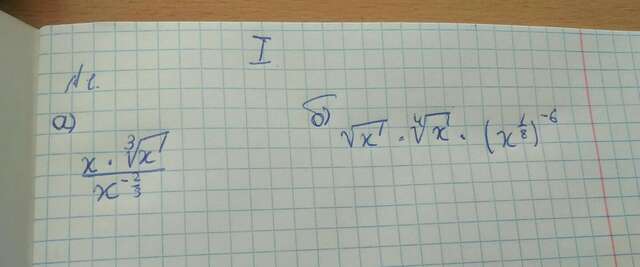 I
№1.
а) x · ∛x / x^(-2/3)
б) √x · ∜x · (x^(1/8))^(-6)